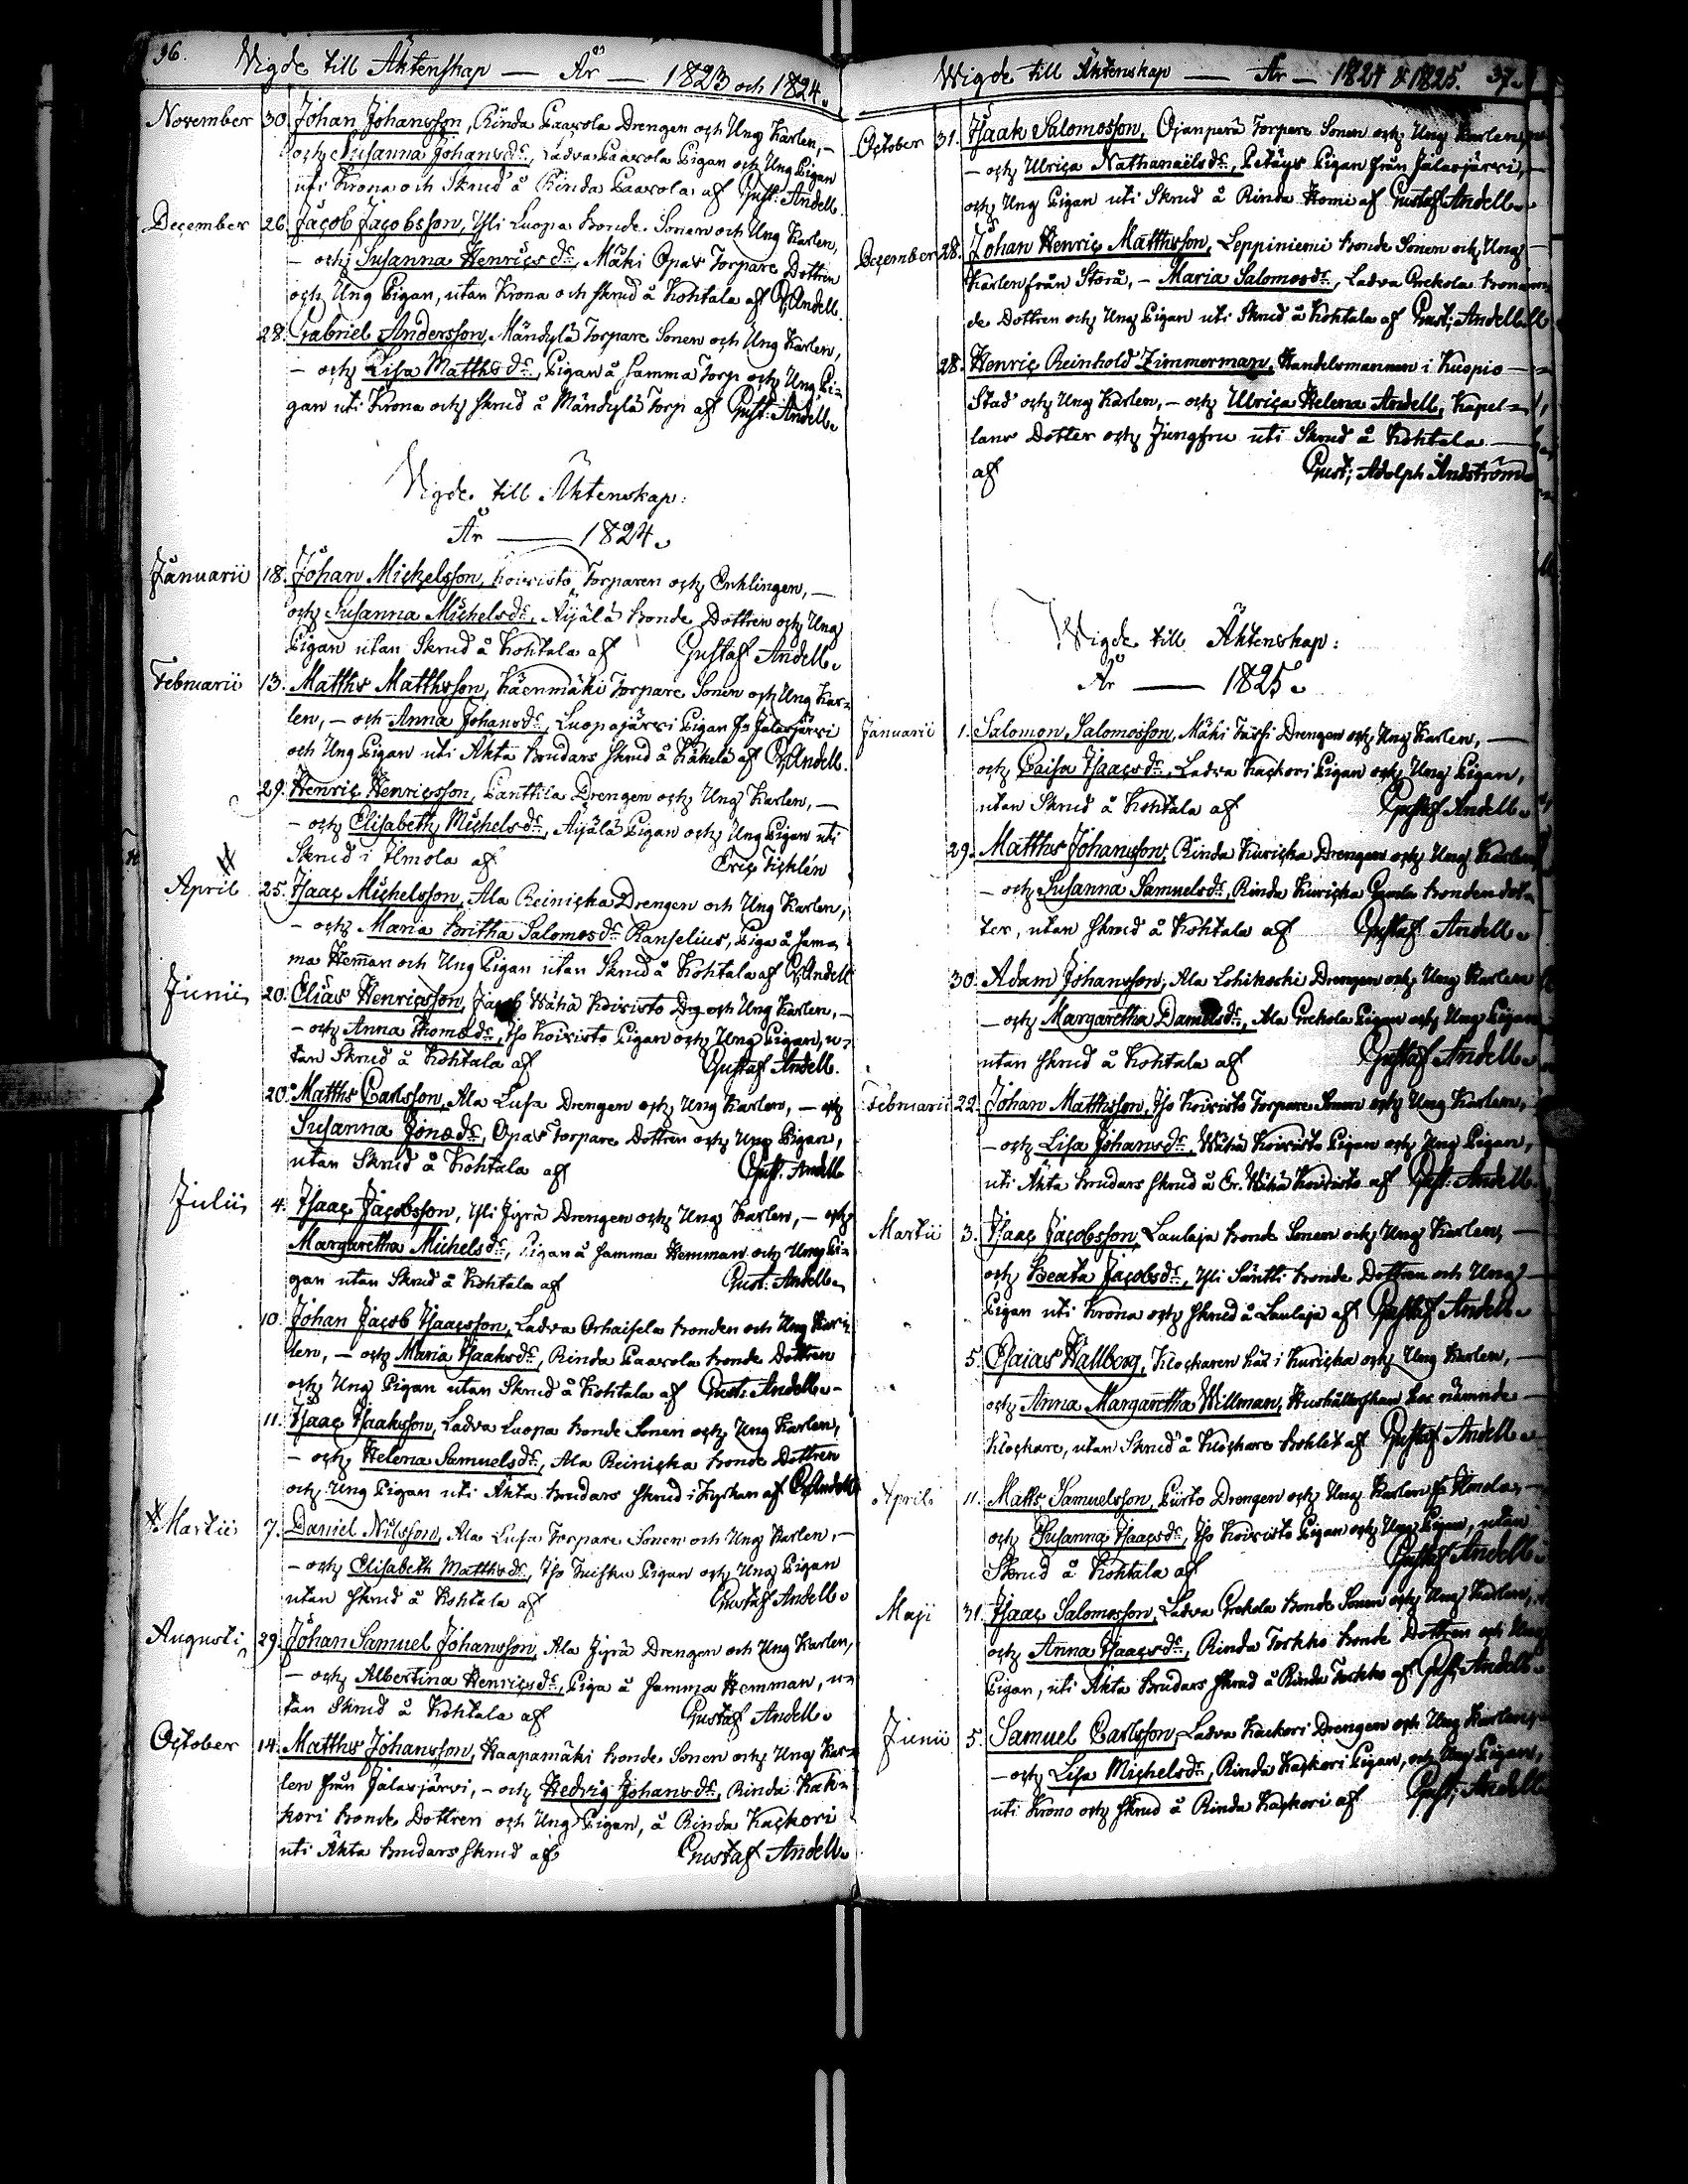 36.
Wigde till Äktenskap — År — 1823 och 1824.
November 30. Johan Johansson, Rinda Paavola Drengen och Ung Karlen, –
och Susanna Johansdr, Ladva Paavola Pigan och Ung Pigan
uti Krona och Skrud å Rinda Paavola af Gust: Andell.
December 26. Jacob Jacobsson, Yli Luopa Bonde Sonen och Ung Karlen,
– och Susanna Henricsdr, Mäki Opas Torpare Dottren
och Ung Pigan, utan Krona och skrud å Kohtala af G. Andell.
28. Gabriel Andersson, Mändylä Torpare Sonen och Ung Karlen,
– och Lisa Matthsdr, Pigan å samma Torp och Ung Pi=
gan uti Krona och skrud å Mändylä Torp af Gust: Andell.
Wigde till Äktenskap:
År — 1824.
Januarii 18. Johan Michelsson, Koivisto Torparen och Enklingen, –
och Susanna Michelsdr, Äijälä Bonde Dottren och Ung
Pigan utan Skrud å Kohtala af Gustaf Andell.
Februarii 13. Matths Matthsson, Käenmäki Torpare Sonen och Ung Kar=
len, – och Anna Johansdr, Luopajärvi Pigan fr Jalasjärvi
och Ung Pigan uti Äkta Brudars Skrud å Käkelä af G. Andell.
29. Henric Henricsson, Panttila Drengen och Ung Karlen, –
– och Elisabeth Michelsdr, Äijälä Pigan och Ung Pigan uti
Skrud i Ilmola af Eric Ticklén
#
April 25. Isaac Michelsson, Ala Reinicka Drengen och Ung Karlen,
– och Maria Britha Salomosdr Ranselius, Piga å sam=
ma Heman och Ung Pigan utan Skrud å Kohtala af G. Andell
Junii 20. Elias Henricsson, Jacob Wähä Koivisto Drg och Ung Karlen, –
– och Anna Thomædr, Iso Koivisto Pigan och Ung Pigan, u=
tan Skrud å Kohtala af Gustaf Andell.
20. Matths Carlsson, Ala Lusa Drengen och Ung Karlen, – och
Susanna Jonædr, Opas Torpare Dottren och Ung Pigan,
utan Skrud å Kohtala af Gust. Andell
Julii 4. Isaac Jacobsson, Yli Jyrä Drengen och Ung Karlen, – och
Margaretha Michelsdr, Pigan å samma Hemman och Ung Pi=
gan utan Skrud å Kohtala af Gust. Andell.
10. Johan Jacob Isaacsson, Ladva Orhaisela Bonden och Ung Kar=
len, – och Maria Isaaksdr, Rinda Paavola Bonde Dottren
och Ung Pigan utan Skrud å Kohtala af Gust. Andell. –
11. Isaac Isaaksson, Ladva Luopa Bonde Sonen och Ung Karlen,
– och Helena Samuelsdr, Ala Reinicka Bonde Dottren
och Ung Pigan uti Äkta Brudars Skrud i Kyrkan af G. Andell
# Martii 7. Daniel Nilsson, Ala Lusa Torpare Sonen och Ung Karlen, –
– och Elisabeth Matthsdr, Iso Tuisku Pigan och Ung Pigan
utan Skrud å Kohtala af Gustaf Andell.
Augusti 29. Johan Samuel Johansson, Ala Jyrä Drengen och Ung Karlen,
– och Albertina Henricsdr, Piga å samma Hemman, u=
tan Skrud å Kohtala af Gustaf Andell.
October 14. Matths Johansson, Haapamäki Bonde Sonen och Ung Kar=
len från Jalasjärvi, – och Hedvig Johansdr, Rinda Kack=
kori Bonde Dottren och Ung Pigan, å Rinda Kackori
uti Äkta Brudars Skrud af Gustaf Andell.
Wigde till Äktenskap — År — 1824 & 1825. 37.
October 31. Isaak Salomosson, Ojanperä Torpare Sonen och Ung Karlen,
– och Ulrica Nathanaëlsdr, Petäys Pigan från Jalasjärvi, –
och Ung Pigan uti Skrud å Rinda Komi af Gustaf Andell.
December 28. Johan Henric Matthsson, Leppiniemi Bonde Sonen och Ung
Karlen från Storå, – Maria Salomosdr, Ladva Grekola Bon=
de Dottren och Ung Pigan uti Skrud å Kohtala af Gust: Andell
28. Henric Reinhold Zimmerman, Handelsmannen i Kuopio –
Stad och Ung Karlen, – och Ulrica Helena Andell, Kapel=
lans Dotter och Jungfru uti Skrud å Kohtala —
af Gust; Adolph Andström
Wigde till Äktenskap:
År — 1825.
Januarii 1. Salomon Salomosson, Mäki Drengen och Ung Karlen, —
och Caisa Isaacsdr, Ladva Kackori Pigan och Ung Pigan,
utan Skrud å Kohtala af Gustaf Andell.
29. Matths Johansson, Rinda Kuricka Drengen och Ung Karlen
– och Susanna Samuelsdr, Rinda Kuricka Gamla Bonden dot=
ter, utan skrud å Kohtala af Gustaf Andell.
30. Adam Johansson, Ala Lohikoski Drengen och Ung Karlen
– och Margaretha Danielsdr, Ala Grekola Pigan och Ung Pigan
utan Skrud å Kohtala af Gustaf Andell.
Februarii 22. Johan Matthsson, Iso Koivisto Torpare Sonen och Ung Karlen,
– och Lisa Johansdr, Wähä Koivisto Pigan och Ung Pigan,
uti Äkta Brudars Skrud å Er. Wähä Koivisto af Gust: Andell
Martii 3. Isaac Jacobsson, Laulaja Bonde Sonen och Ung Karlen, –
och Beata Jacobsdr, Yli Säntti Bonde Dottren och Ung –
Pigan uti Krona och Skrud å Laulaja af Gustaf Andell.
5. Esaias Hallborg, Klockaren här i Kuricka och Ung Karlen, –
och Anna Margaretha Willman, Hushållerskan hos nämnde –
Klockare, utan Skrud å Klockare Bohlet af Gustaf Andell
April 11. Matts Samuelsson, Piirto Drengen och Ung Karlen fr Ilmola, –
och Susanna Isaacsdr, Iso Koivisto Pigan och Ung Pigan, utan
Skrud å Kohtala af Gustaf Andell.
Maji 31. Isaac Salomosson, Ladva Grekola Bonde Sonen och Ung Karlen,
och Anna Isaacsdr, Rinda Torkko Bonde Dottren och Ung
Pigan, uti Äkta Brudars Skrud å Rinda Torkko af Gust; Andell.
Junii 5. Samuel Carlsson, Ladva Kackori Drengen och Ung Karlen,
– och Lisa Michelsdr, Rinda Kackori Pigan, och Ung Pigan,
uti Krono och Skrud å Rinda Kackori af Gust; Andell